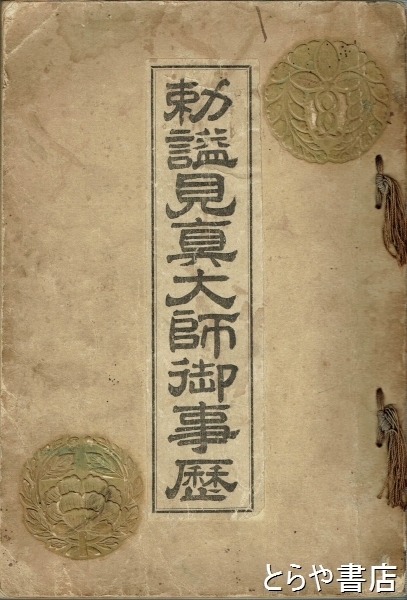 勅謚見真大師御事歴
とらや書店